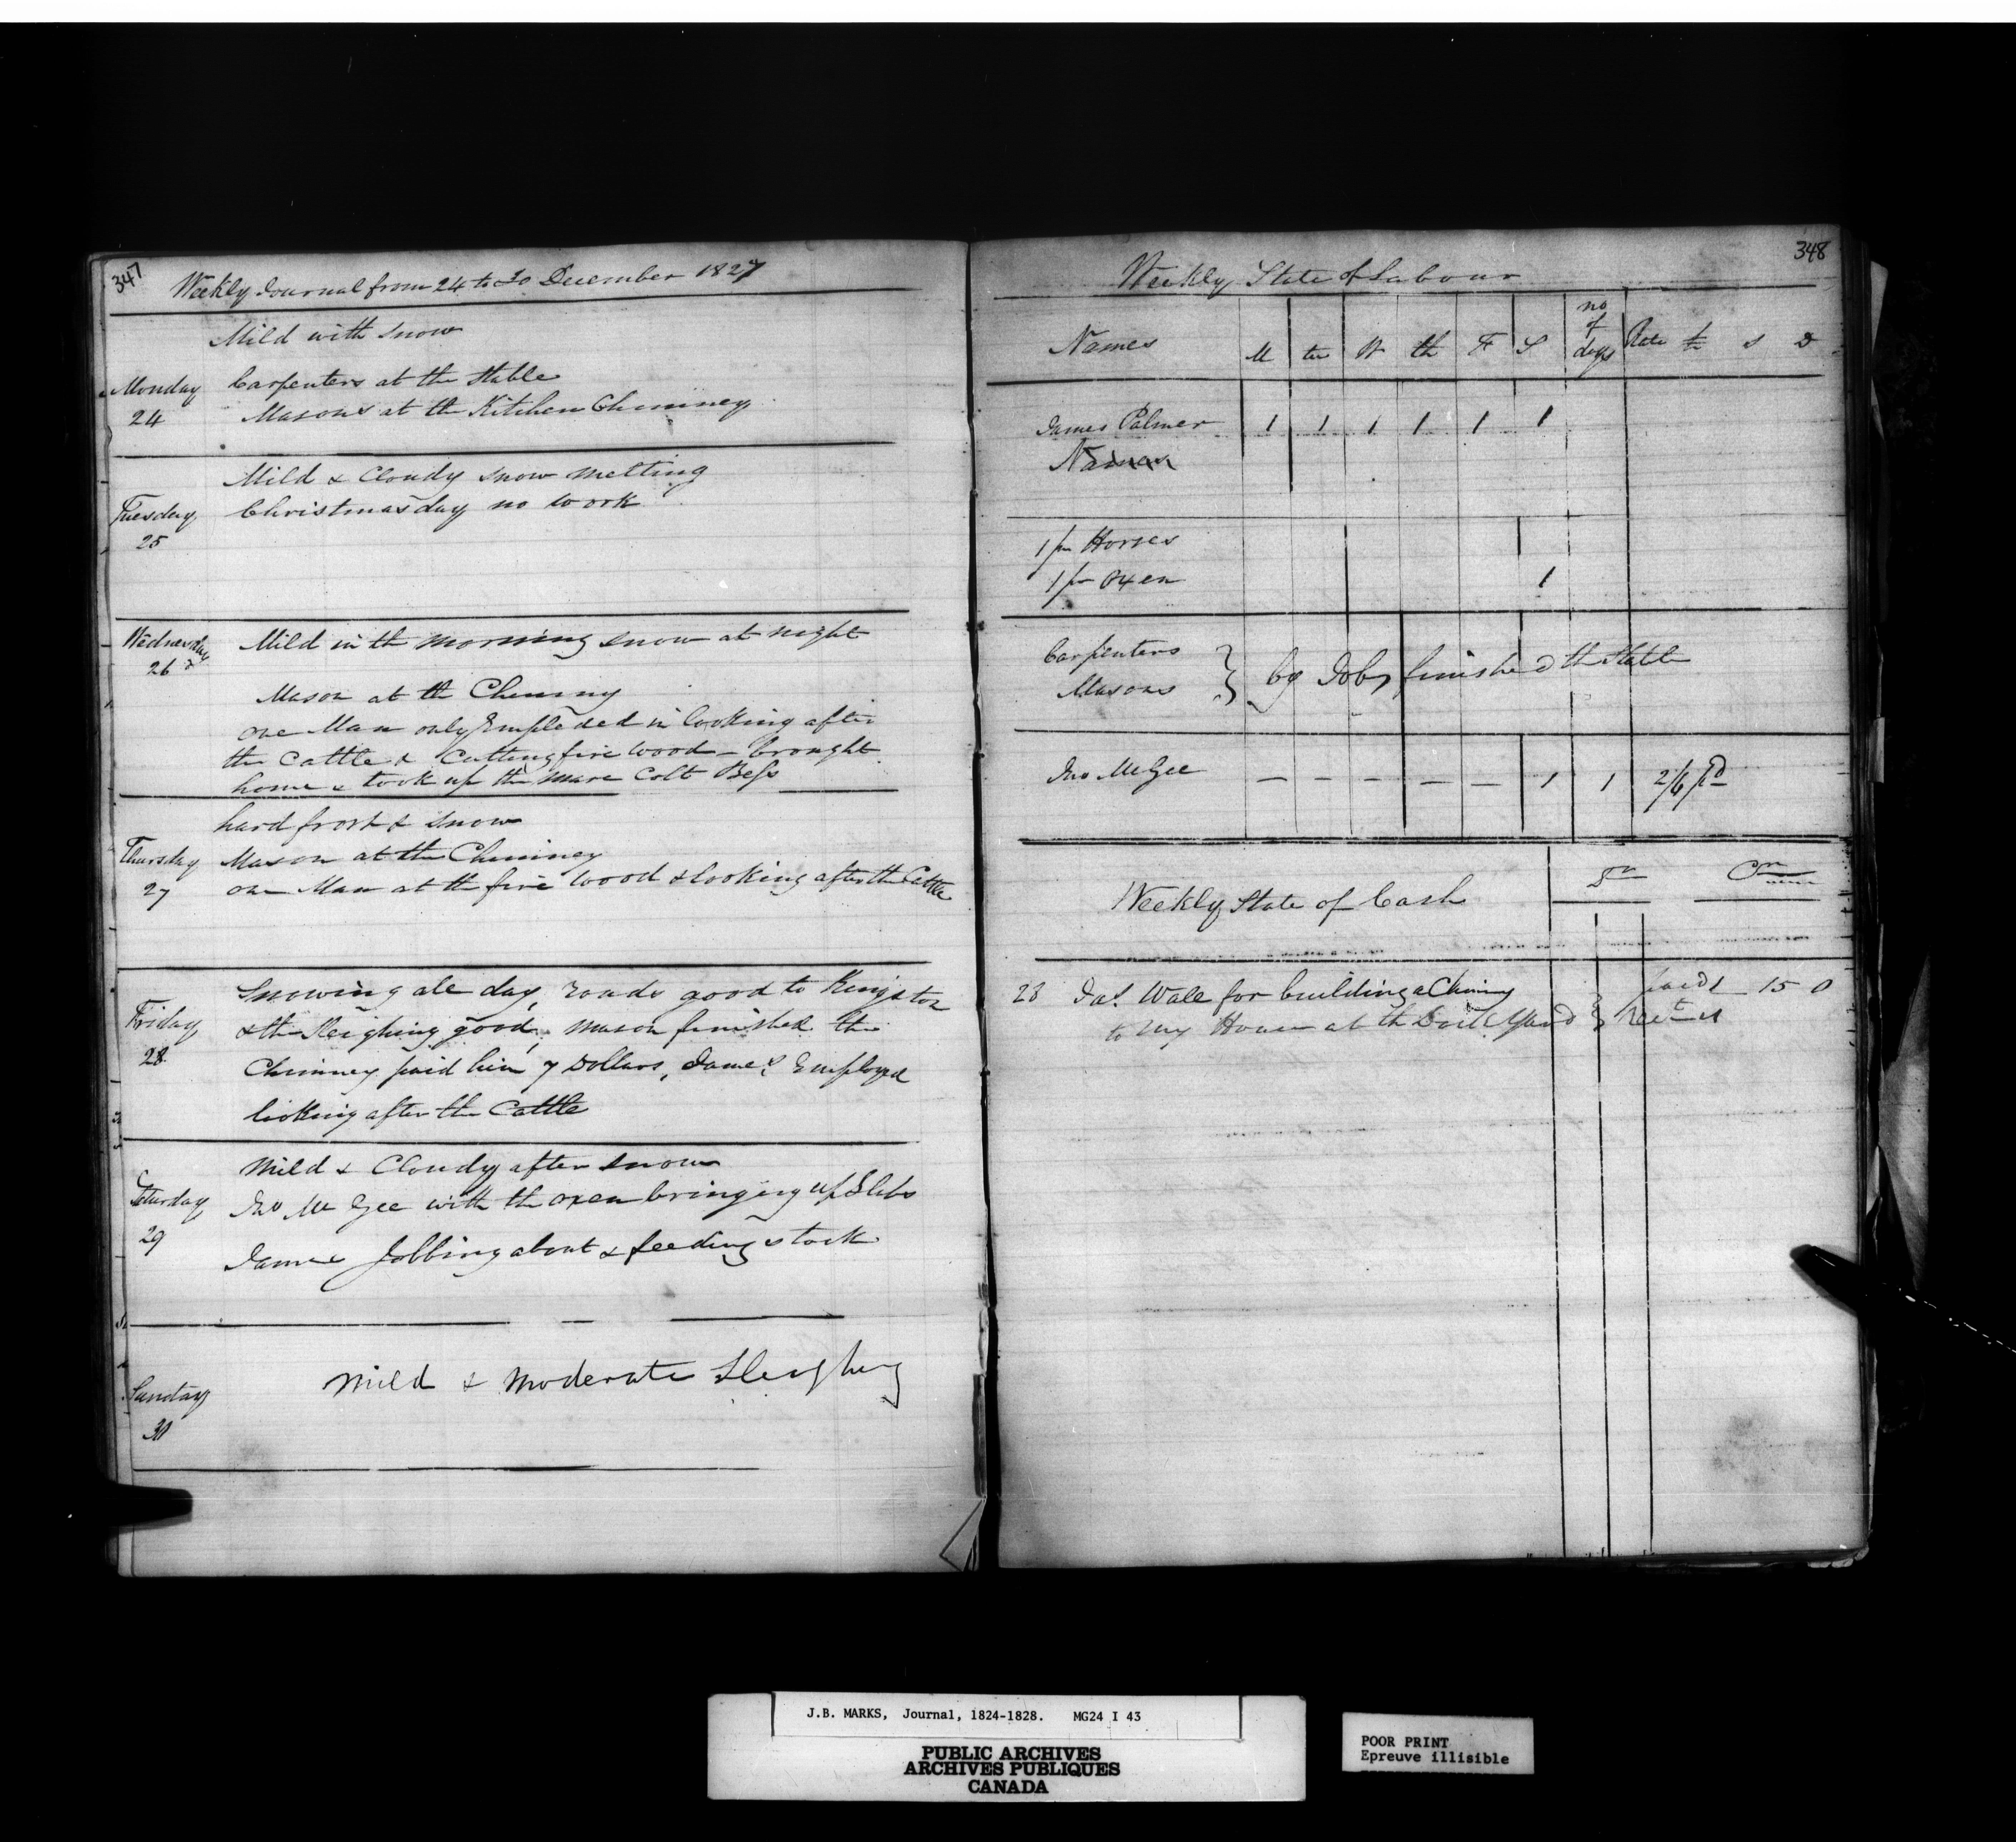 347
Weekly Journal from 24 to 30 December 1827
Mild with Snow
Monday
24
Carpenters at the Stable
Masons at the Kitchen Chimney
Mild & Cloudy Snow melting
Tuesday
25
Christmas day no work
Wednesday
26
Mild in th morning snow at night
Mason at th Chimny
one Man only Emploded in looking after
the Cattle & Cutting fire wood - brought
home & took up the mare Colt Bess
hard frost & Snow
Thursday
27
Mason at the Chimney
one Man at th fire wood & looking after the Cattle
Friday
28
Snowing ale day, roads good to Kingston
& th Sleighing good, Mason finished the
Chimney paid him 7 Dollars, James Employed
looking after the Cattle
Mild & Cloudy after snow
Saturday
29
Jno Mc Gee with th oxen bringing up Slabs
James Jobbing about & feeding stock
Sunday
30
Mild & Moderate Sleighing
348
Weekly State of Labour
Names M tu W th F S no of days Rate £ s D
James Palmer 1 1 1 1 1 1
Names
1 pr Horses
1 pr Oxen 1
Carpenters
Masons } by Job, finished th Stable
Jno McGee — — — — — 1 1 2/6 pd
Weekly State of Cash Dr Cr
23 Jas Wale for building a Chimny
to my House at th Dock Yard } paid 1 - 15 0
J.B. MARKS, Journal, 1824-1828. MG24 I 43
PUBLIC ARCHIVES
ARCHIVES PUBLIQUES
CANADA
POOR PRINT
Epreuve illisible